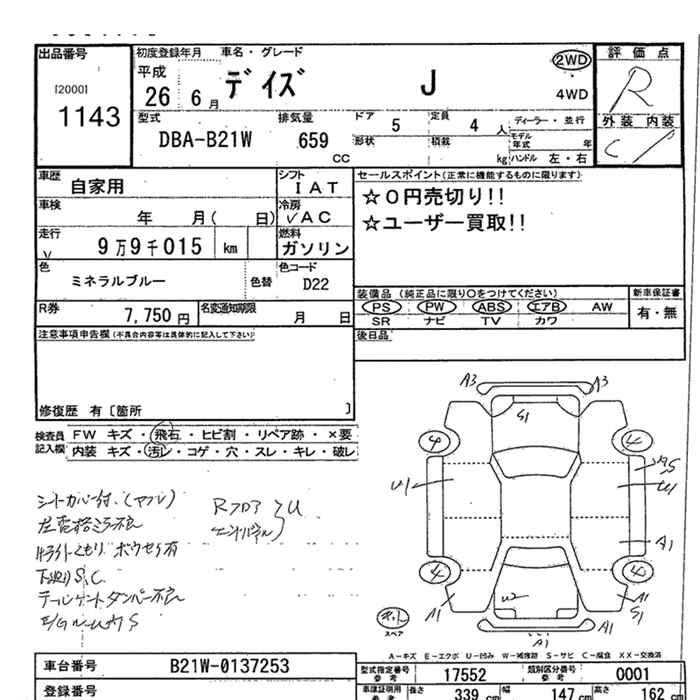 出品番号
[2000]
1143
初度登録年月 車名・グレード
平成
26 6月
デイズ J
2WD
4WD
評価点
R
型式
DBA-B21W
排気量
659
CC
ドア 5
定員 4 人
形状
積載 kg
ディーラー・並行
モデル年式 年
ハンドル 左・右
外装 内装
C
車歴 自家用
シフト
IAT
車検 年 月( 日)
冷房
AC
走行 9万9千015 km
燃料
ガソリン
色
ミネラルブルー
色替
色コード
D22
R券 7,750 円
名変通知期限 月 日
セールスポイント(正常に機能するものに限ります)
☆0円売切り!!
☆ユーザー買取!!
装備品 (純正品に限り○をつけてください)
PS PW ABS エアB AW
SR ナビ TV カワ
新車保証書
有・無
後日品
注意事項申告欄(不具合内容等は具体的に記入して下さい)
修復歴 有〔箇所 〕
検査員記入欄
FW キズ・飛石・ヒビ割・リペア跡・×要
内装 キズ・汚レ・コゲ・穴・スレ・キレ・破レ
下廻りS.C.
A3 A3
S1
U1
A1
A1
A1
S1
A1
A1
スペア
A-キズ E-エクボ U-凹み W-補修跡 S-サビ C-腐食 XX-交換済
車台番号 B21W-0137253
登録番号
型式指定番号参考 17552
類別区分番号参考 0001
車庫証明用参考 長さ 339 cm 幅 147 cm 高さ 162 cm